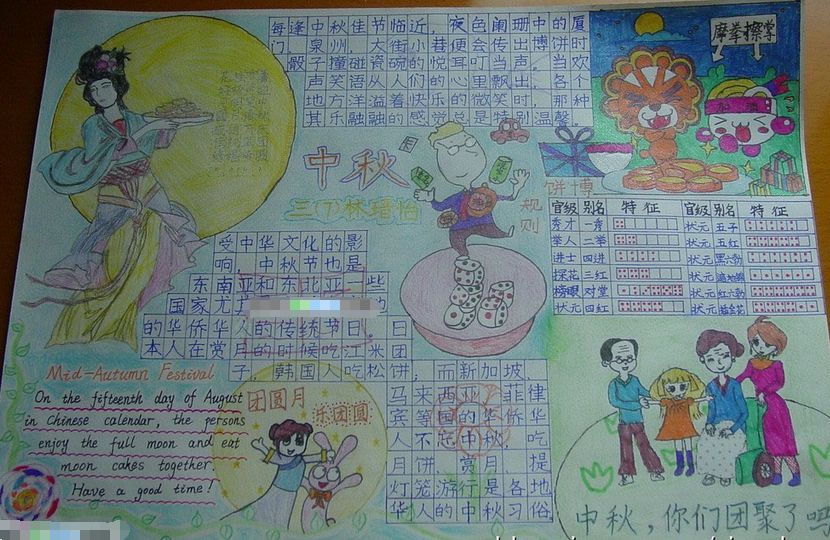 每逢中秋佳节临近，夜色阑珊中的厦
门、泉州，大街小巷便会传出博饼时
骰子撞碰瓷碗的悦耳叮当声。当欢
声笑语从人们的心里飘出，各个
地方洋溢着快乐的微笑时，那种
其乐融融的感觉总是特别温馨。
摩拳擦掌
中秋
三(7)林
博饼
规则
官级 别名 特征 官级 别名 特征
秀才 一秀 状元 五子
举人 二举 状元 五红
进士 四进 状元 黑六勃
探花 三红 状元 遍地锦
榜眼 对堂 状元 红六勃
状元 四红 状元 插金花
受中华文化的影
响，中秋节也是
东南亚和东北亚一些
国家尤其
的华侨华人的传统节日。日
本人在赏月的时候吃江米团
子，韩国人吃松饼，而新加坡、
马来西亚、菲律
宾等国的华侨华
人不忘中秋，吃
月饼、赏月、提
灯笼游行是各地
华人的中秋习俗。
Mid-Autumn Festival
On the fifteenth day of August
in Chinese calendar, the persons
enjoy the full moon and eat
moon cakes together.
Have a good time!
团圆月
乐团圆
中秋，你们团聚了吗